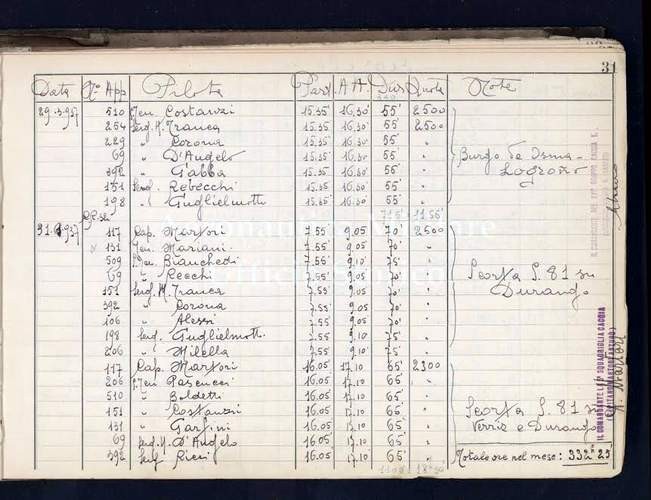 31
Data N° App Pilota Part. A.A. Dur. Quota Note
29.3.937 510 Ten. Costanzi 15.35' 16.30' 55' 2500
254 Serg. M. Franca 15.35' 16.30' 55' 2500
229 " Corona 15.35' 16.30' 55' "
69 " D'Angelo 15.35' 16.30 55' "
392 " Gabba 15.35 16.30' 55' "
151 Serg. Rebecchi 15.35 16.30' 55' "
198 " Guglielmotti 15.35 16.30' 55' "
Burgo de Osma -
Logroño
31.3.937 117 Cap. Martori 7.55' 9.05 70' 2500
131 Ten. Mariani 7.55' 9.05' 70' "
509 S.Ten. Bianchedi 7.55' 9.10' 75' "
69 " Recchi 7.55' 9.05' 70' "
151 Serg. M. Franca 7.55' 9.05 70' "
392 " Corona 7.55' 9.05 70' "
106 " Alessi 7.55' 9.05 70' "
198 Serg. Guglielmotti 7.55' 9.10' 75' "
206 " Milella 7.55' 9.10' 75' "
Scorta S.81 su
Durango
117 Cap. Martori 16.05' 17.10 65' 2300
206 S.Ten. Pascucci 16.05' 17.10' 65' "
510 " Boldetti 16.05' 17.10' 65' "
151 " Costanzi 16.05' 17.10' 65' "
131 " Garfini 16.05' 17.10' 65' "
69 Serg. M. D'Angelo 16.05' 17.10' 65' "
392 Serg. Ricci 16.05' 17.10' 65' "
Scorta S.81 su
Verriz e Durango
Totale ore nel mese: 332 25
IL COMANDANTE LA SQUADRIGLIA CACCIA